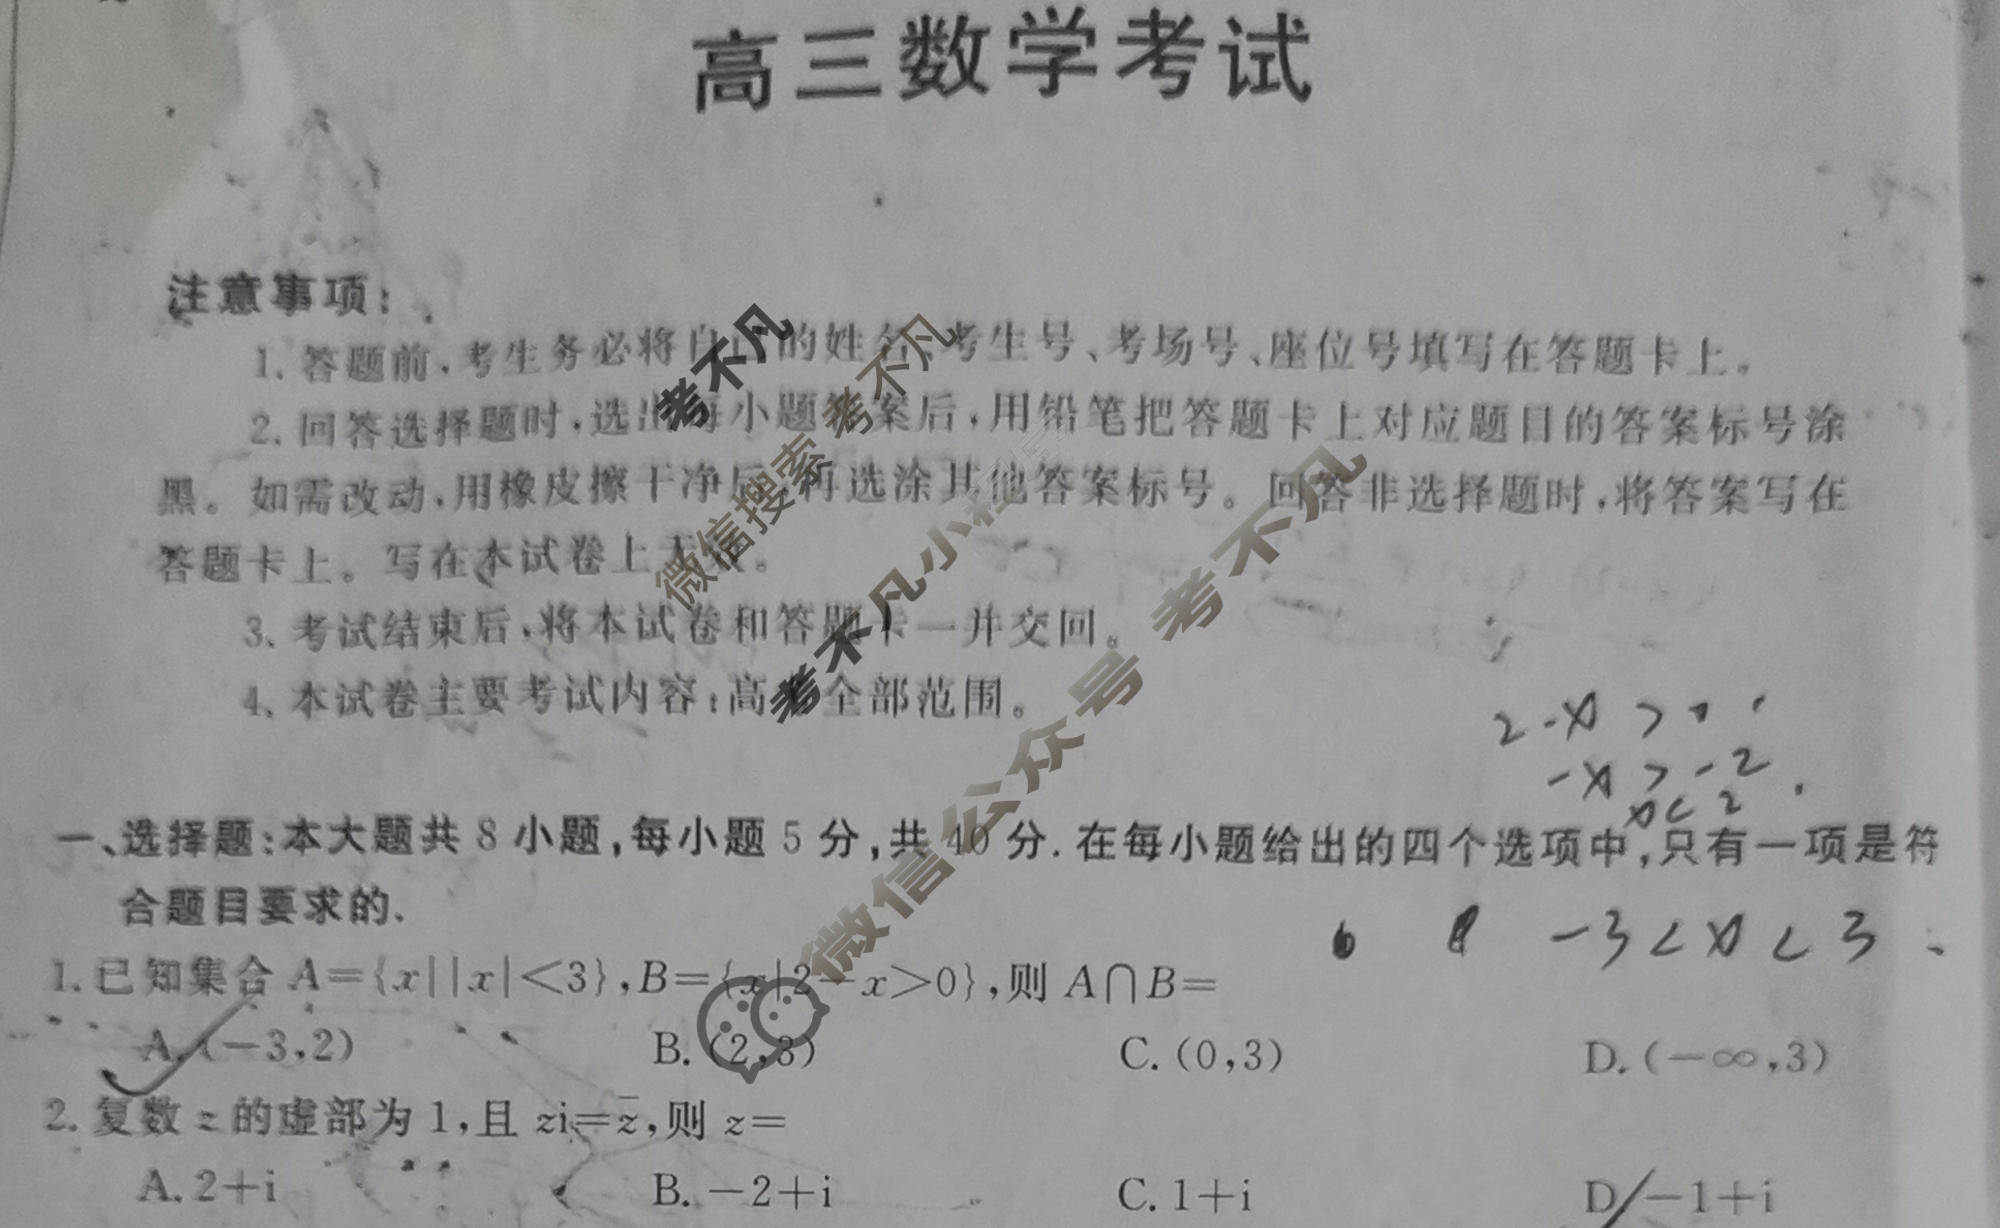 高三数学考试
注意事项：
1. 答题前，考生务必将自己的姓名、考生号、考场号、座位号填写在答题卡上。
2. 回答选择题时，选出每小题答案后，用铅笔把答题卡上对应题目的答案标号涂
黑。如需改动，用橡皮擦干净后，再选涂其他答案标号。回答非选择题时，将答案写在
答题卡上。写在本试卷上无效。
3. 考试结束后，将本试卷和答题卡一并交回。
4. 本试卷主要考试内容：高考全部范围。
2-x>0
-x>-2
x<2
一、选择题：本大题共 8 小题，每小题 5 分，共 40 分. 在每小题给出的四个选项中，只有一项是符
合题目要求的.
-3<x<3
1. 已知集合 A={x||x|<3}，B={x|2-x>0}，则 A∩B=
A. (-3,2) B. (2,3) C. (0,3) D. (-∞,3)
2. 复数 z 的虚部为 1，且 zi=z̅，则 z=
A. 2+i B. -2+i C. 1+i D. -1+i
考不凡
微信搜索 考不凡
考不凡小程序
微信公众号 考不凡